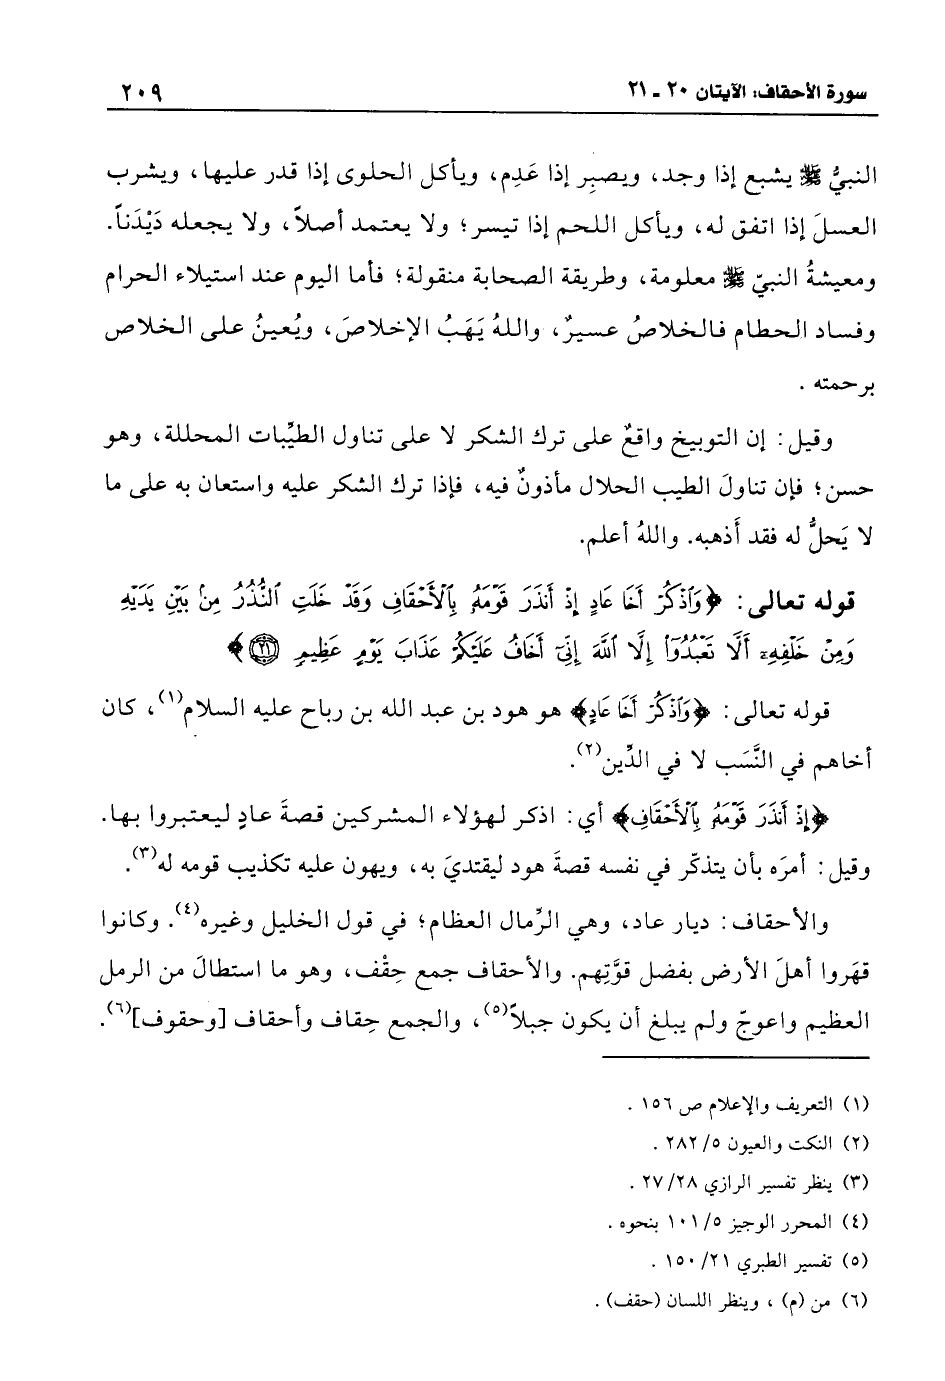 سورة الأحقاف: الآيتان ٢٠ ـ ٢١ ٢٠٩
النبيُّ ﷺ يشبع إذا وجد، ويصبِر إذا عَدِم، ويأكل الحلوى إذا قدر عليها، ويشرب
العسلَ إذا اتفق له، ويأكل اللحم إذا تيسر؛ ولا يعتمد أصلاً، ولا يجعله دَيْدَناً.
ومعيشةُ النبيّ ﷺ معلومة، وطريقة الصحابة منقولة؛ فأما اليوم عند استيلاء الحرام
وفساد الحطام فالخلاصُ عسيرٌ، واللهُ يَهَبُ الإخلاصَ، ويُعينُ على الخلاص
برحمته .
وقيل: إن التوبيخ واقعٌ على ترك الشكر لا على تناول الطيِّبات المحللة، وهو
حسن؛ فإن تناولَ الطيب الحلال مأذونٌ فيه، فإذا ترك الشكر عليه واستعان به على ما
لا يَحلُّ له فقد أَذهبه. واللهُ أعلم.
قوله تعالى: ﴿وَٱذْكُرْ أَخَا عَادٍ إِذْ أَنذَرَ قَوْمَهُۥ بِٱلْأَحْقَافِ وَقَدْ خَلَتِ ٱلنُّذُرُ مِنۢ بَيْنِ يَدَيْهِ
وَمِنْ خَلْفِهِۦٓ أَلَّا تَعْبُدُوٓا۟ إِلَّا ٱللَّهَ إِنِّىٓ أَخَافُ عَلَيْكُمْ عَذَابَ يَوْمٍ عَظِيمٍ ٢١﴾
قوله تعالى: ﴿وَٱذْكُرْ أَخَا عَادٍ﴾ هو هود بن عبد الله بن رباح عليه السلام(١)، كان
أخاهم في النَّسَب لا في الدِّين(٢).
﴿إِذْ أَنذَرَ قَوْمَهُۥ بِٱلْأَحْقَافِ﴾ أي: اذكر لهؤلاء المشركين قصةَ عادٍ ليعتبروا بها.
وقيل: أمرَه بأن يتذكّر في نفسه قصةَ هود ليقتديَ به، ويهون عليه تكذيب قومه له(٣).
والأحقاف: ديار عاد، وهي الرِّمال العظام؛ في قول الخليل وغيره(٤). وكانوا
قهَروا أهلَ الأرض بفضل قوَّتِهم. والأحقاف جمع حِقْف، وهو ما استطالَ من الرمل
العظيم واعوجّ ولم يبلغ أن يكون جبلاً(٥)، والجمع حِقاف وأحقاف [وحقوف](٦).
(١) التعريف والإعلام ص ١٥٦ .
(٢) النكت والعيون ٥/ ٢٨٢ .
(٣) ينظر تفسير الرازي ٢٨/ ٢٧ .
(٤) المحرر الوجيز ٥/ ١٠١ بنحوه .
(٥) تفسير الطبري ٢١/ ١٥٠ .
(٦) من (م) ، وينظر اللسان (حقف) .